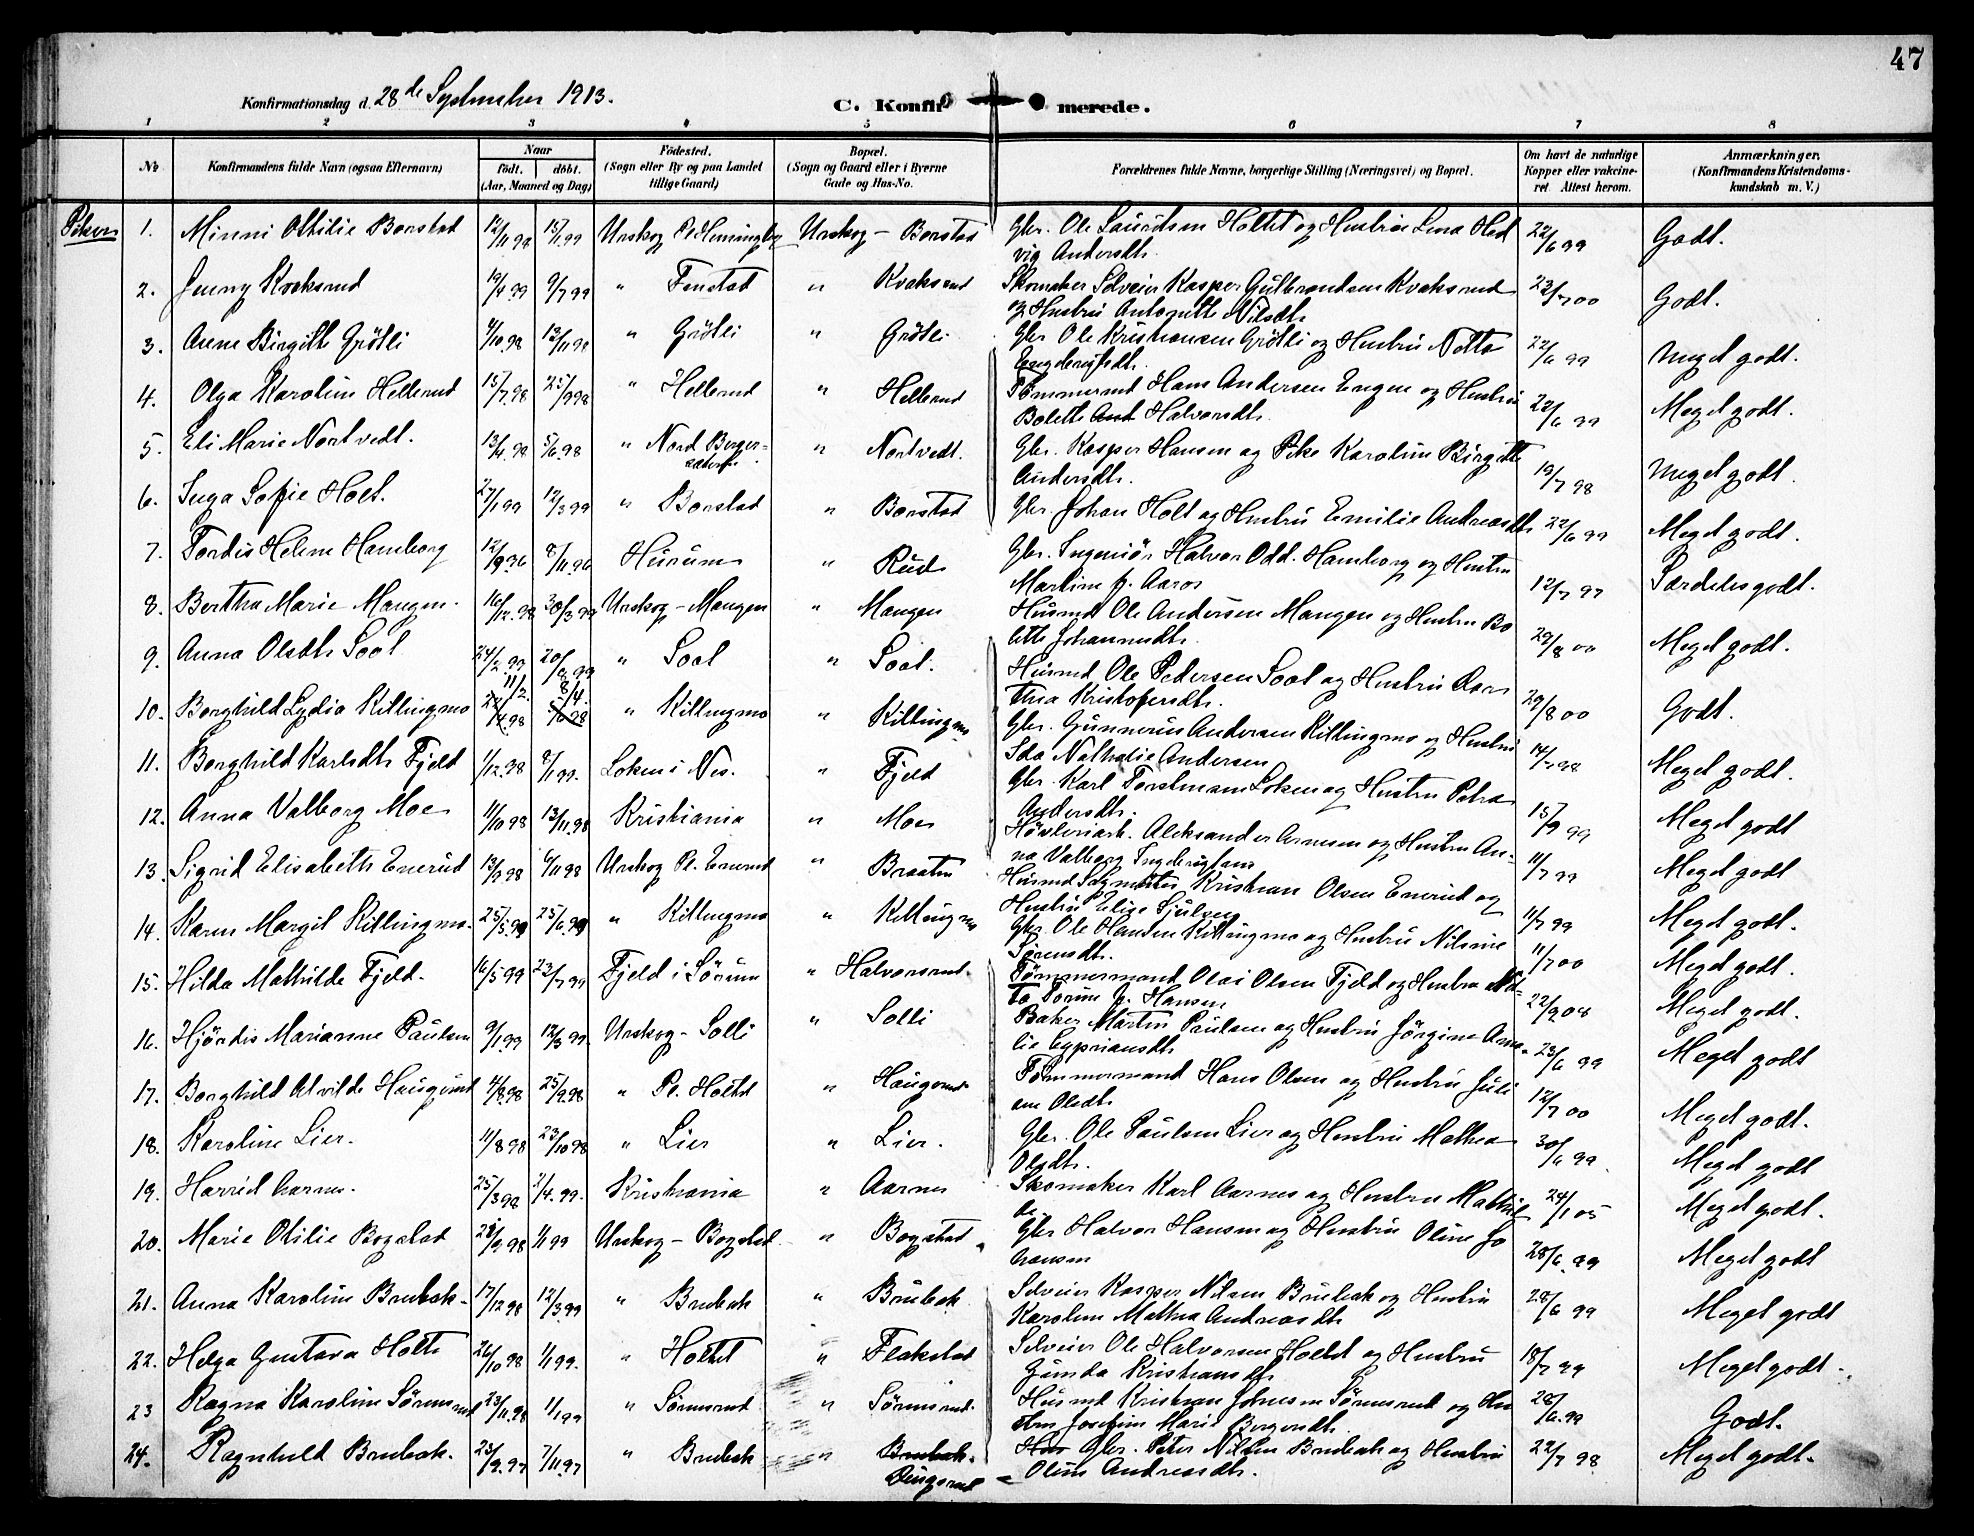 47
Konfirmationsdag d. 28de September 1913.
C. Konfirmerede.
1 2 3 4 5 6 7 8
No
Konfirmandens fulde Navn (ogsaa Efternavn)
Naar
født. døbt.
(Aar, Maaned og Dag)
Fødested.
(Sogn eller By og paa Landet
tillige Gaard)
Bopæl.
(Sogn og Gaard eller i Byerne
Gade og Hus-No.
Forældrenes fulde Navne, borgerlige Stilling (Næringsvei) og Bopæl.
Om havt de naturlige
Kopper eller vakcine-
ret. Attest herom.
Anmærkninger.
(Konfirmandens Kristendoms-
kundskab m. V.)
Piker
1. Minni Othilie Borstad 12/11 98 15/1 99 Urskog Pl. Henningby Urskog - Borstad Gbr. Ole Lauritsen Holtet og Hustru Lina Hed 22/6 99 Godt.
vig Andersdtr.
2. Jenny Kvaksrud 19/4 99 9/7 99 " Fenstad " Kvaksrud Skomaker Selveier Kasper Gulbrandsen Kvaksrud 23/7 00 Godt.
og Hustru Antonette Nilsdtr.
3. Anne Birgitte Grøtli 4/10 98 13/11 98 " Grøtli " Grøtli Gbr Ole Kristiansen Grøtli og Hustru Netta 22/6 99 Meget godt.
4. Olga Karoline Hellerud 15/7 98 25/9 98 " Hellerud " Hellerud Tømmermd Hans Andersen Engen og Hustru 22/6 99 Meget godt.
Bolette And Halvorsdtr.
5. Eli Marie Nortvedt. 13/4 98 5/6 98 " Nord Berger- " Nortvedt. Gbr. Kasper Hansen og Pike Karoline Birgitte 19/7 98 Meget godt.
Andersdtr.
6. Inga Sofie Holt. 27/1 99 12/3 99 " Borstad " Borstad Gbr. Johan Holt og Hustru Emilie Andreasdtr 22/6 99 Meget godt.
7. Tordis Helene Hamborg 12/9 96 8/11 96 Hurum " Rud Gbr. Ingeniør Halvor Odd. Hamborg og Hustru 12/7 97 Særdeles godt.
Martine f. Aaros
8. Bertha Marie Mangen. 16/12 98 30/3 99 Urskog - Mangen " Mangen Husmd Ole Andersen Mangen og Hustru Bo 29/8 00 Meget godt.
lette Johannesdtr.
9. Anna Olsdtr Soot 24/2 99 " Soot " Soot. Husmd Ole Pedersen Soot og Hustru Aas 29/8 00 Godt.
thea Kristofersdtr.
11/2. 8/4.
10. Borghild Lydia Killingmo " Killingmo " Killingmo Gbr. Gunnerius Andersen Killingmo og Hustru Meget godt.
Ida Nathalie Andersen
11. Borghild Karlsdtr Fjeld 1/12 98 8/1 99. Loken i Nes. " Fjeld Gbr. Karl Torstensen Loken og Hustru Petra 15/9 99 Meget godt
Andersdtr.
12. Anna Valborg Moe 11/10 98 13/11 98 Kristiania " Moe Høvleriarb. Aleksander Arnesen og Hustru An- 11/7 99 Meget godt
na Valborg
13. Sigrid Elisabeth Enerud 13/9 98 6/11 98 Urskog Pl. Enerud " Braaten Husmd Sagmester Kristian Olsen Enerud og 11/7 99 Meget godt.
Hustru Elise
14. Karen Margit Killingmo. 25/5 99 25/6 99 " Killingmo " Killingmo Gbr Ole Hansen Killingmo og Hustru Nilsine 11/7 00 Meget godt.
Sørensdtr.
15. Hilda Mathilde Fjeld. 16/5 99 23/7 99 Fjeld i Sørum " Halvorsrud. Tømmermand Olai Olsen Fjeld og Hustru 22/9 08 Meget godt.
16. Hjørdis Marianne Paulsen 9/1 99 12/3 99. Urskog - Solli " Solli Baker Martin Paulsen og Hustru Jørgine Ama- 23/6 99 Meget godt
lie Cypriansdtr
17. Borghild Alvilde Haugsrud 4/8 98 25/9 98 " Pl. Holtet " Haugsrud Tømmermand Hans Olsen og Hustru Juli 12/7 00 Meget godt.
ane Olsdtr
18. Karoline Lier. 11/8 98 23/10 98 " Lier " Lier. Gbr. Ole Paulsen Lier og Hustru Mathea 30/6 99 Meget godt
Olsdtr.
19. Harrid Aarnes. 25/3 98 2/4 99. Kristiania " Aarnes Skomaker Karl Aarnes og Hustru Mathil 24/1 05 Meget godt.
de
20. Marie Otilie Bogstad 28/9 98 1/1 99 Urskog - Bogstad " Bogstad Gbr Halvor Hansen og Hustru Oline Jo 28/6 99 Meget godt
hansen
21. Anna Karoline Brubak. 17/12 98 12/3 99 " Brubak " Brubak Selveier Kasper Nilsen Brubak og Hustru 28/6 99 Meget godt
Karoline Mathea Andreasdtr
22. Helga Gustava Holt 26/10 98 1/1 99. " Holtet " Flakstad Selveier Ole Halvorsen Holtet og Hustru 18/7 99 Meget godt.
Gunda Kristiansdtr
23 Ragna Karoline Sørensrud 23/11 98 1/1 99 " Sørensrud " Sørensrud. Husmd Kristian Johnsen Sørensrud og Hu 28/6 99 Godt.
stru Josefine Marie Borgersdtr.
24. Ragnhild Brubak. 23/9 97 7/11 97 " Brubak " Brubak. Hus Gbr. Peter Nilsen Brubak og Hustru 22/7 98 Meget godt.
Oline Andreasdtr.